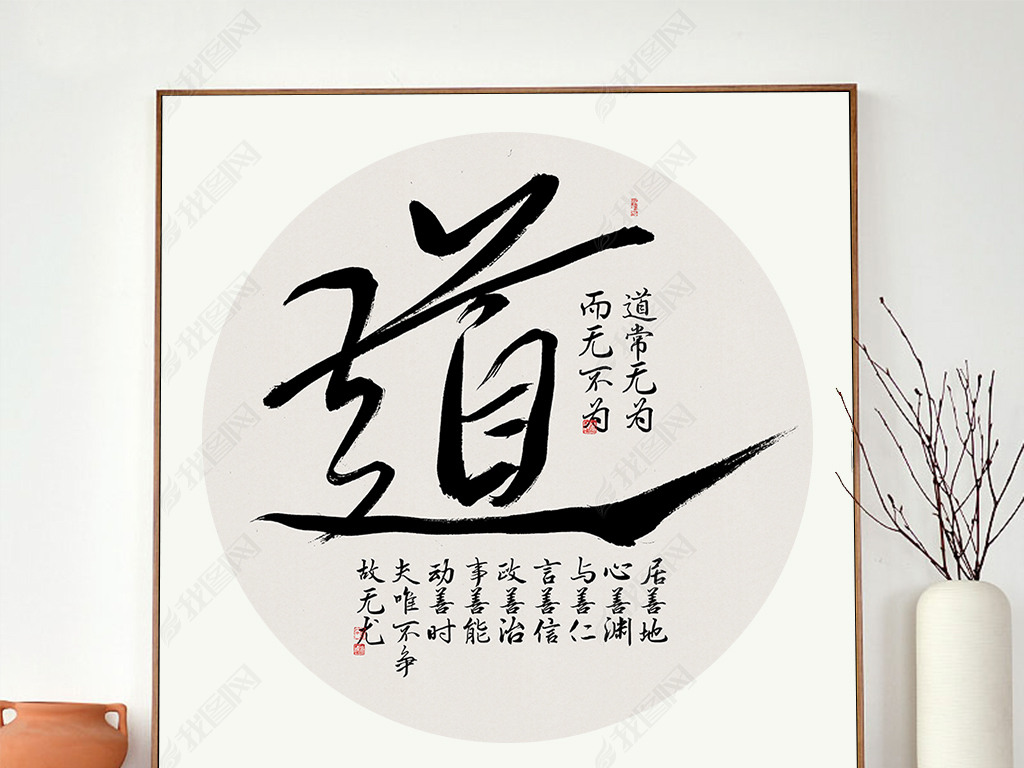 道
道常无为
而无不为
居善地
心善渊
与善仁
言善信
政善治
事善能
动善时
夫唯不争
故无尤